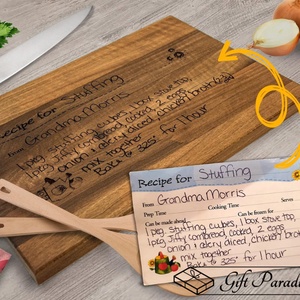 Recipe for Stuffing
From Grandma Morris
1 pkg. stuffing cubes, 1 box stove top,
1 pkg Jiffy cornbread cooked, 2 eggs
onion & celery diced, chicken broth
mix together
Bake to 325° for 1 hour
Recipe for Stuffing
From Grandma Morris
Prep Time Cooking Time Serves
Can be made ahead Can be frozen for
1 pkg. stuffing cubes, 1 box stove top,
1 pkg Jiffy cornbread cooked, 2 eggs
onion & celery diced, chicken broth
mix together
Bake to 325° for 1 hour
Gift Paradi